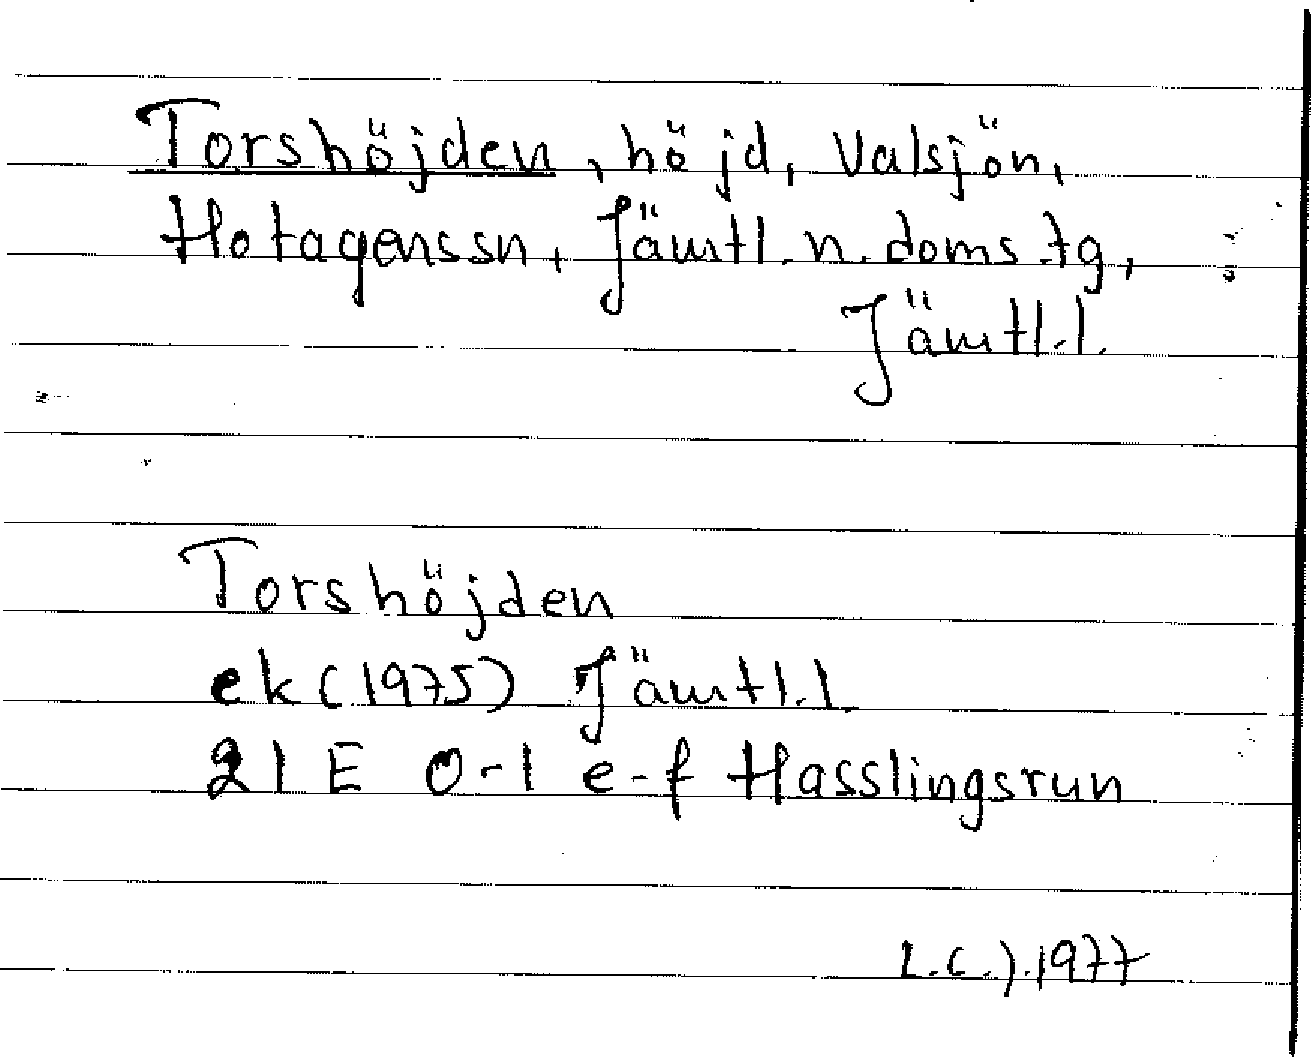 Torshöjden, höjd, Valsjön,
Hotagenssn, Jämtl. n. doms.tg,
Jämtl.l.
Torshöjden
ek (1975) Jämtl.l.
21 E 0-1 e-f Hasslingsrun
L.C.J.1977